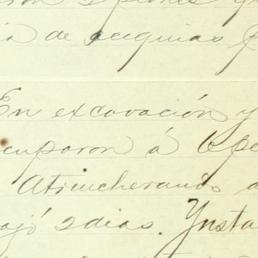 de acequias
En excavación y
cuparon á 6 pe
Atrincherando a
ajó 2 dias. Ynsta